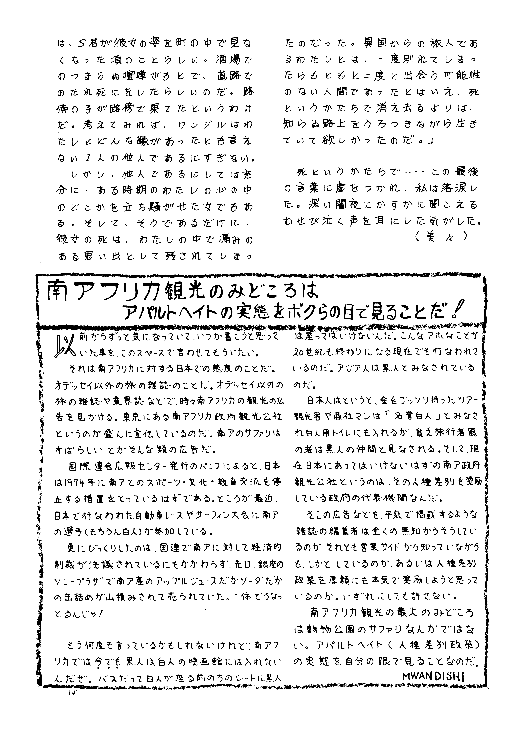 は、S君が彼女の姿を町の中で見な
くなった頃のことらしい。酒場で
のつまらぬ喧嘩がもとで、道路で
のたれ死にをしたらしいのだ。路
傍の子が路傍で果てたというわけ
だ。考えてみれば、ワンダルはわ
たしとどんな縁があったとも言え
ない1人の他人であるにすぎない。
しかし、他人であるにしては充
分に、ある時期のわたしの心の中
のどこかを立ち騒がせた女でもあ
る。そして、そうであるだけに、
彼女の死は、わたしの中で痛みの
ある思い出として残されてしまっ
たのだった。異国からの旅人であ
るわたしとは、一度別れてしまっ
たらもともと二度と出会う可能性
のない人間であったとはいえ、死
というかたちで消え去るよりは、
知らぬ路上をうろつきながら生き
ていて欲しかったのだ。」
死というかたちで……この最後
の言葉に虚をつかれ、私は落涙し
た。深い闇夜にかすかに聞こえる
むせび泣く声を耳にした気がした。
南アフリカ観光のみどころは
アパルトヘイトの実態をボクらの目で見ることだ!
以前からずっと気になっていて、いつか書こうと思って
いた事を、このスペースで言わせてもらいたい。
それは南アフリカに対する日本での態度のことだ。
オデッセイ以外の旅の雑誌のことだ。オデッセイ以外の
旅の雑誌や業界誌などで、時々南アフリカの観光の広
告を見かける。東京にある南アフリカ政府観光公社
というのが盛んに宣伝しているのだ。南アのサファリは
すばらしい とかそんな類の広告だ。
国際連合広報センター発行のパンフによると、日本
は1974年に南アとのスポーツ・文化・教育交流を停
止する措置をとっているはずである。ところが最近、
日本で行なわれた自動車レースやサーフィン大会に南ア
の選手(もちろん白人)が参加している。
更にびっくりしたのは、国連で南アに対して経済的
制裁が決議されているにもかかわらず、先日、銀座の
ソニープラザで南ア産のアップルジュースだかソーダだか
の缶詰めが山積みされて売られていた。一体どうなっ
とるんじゃ!
もう何度も言っているかもしれないけれど、南アフ
リカでは今でも黒人は白人の映画館には入れない
んだぜ。バスだって白人が座る前の方のシートに黒人
は座ってはいけないんだ。こんなアホなことが
20世紀も終わりになる現在でも行なわれて
いるのだ。アジア人は黒人とみなされている
のだ。
日本人はというと、金をごっそり持ったツアー
観光客や商社マンは「名誉白人」とみなさ
れ白人用トイレにも入れるが、貧乏旅行者風
の者は黒人の仲間と見なされる。そして、現
在日本にあってはいけないはずの南ア政府
観光公社というのは、その人種差別を奨励
している政府の代表機関なんだ。
その広告などを、平気で掲載するような
雑誌の編集者は全くの無知からそうしてい
るのか それとも営業サイドから知っていながら
も、しかとしているのか、あるいは人種差別
政策を深刻にも本気で実施しようと思って
いるのか。いずれにしても許せない。
南アフリカ観光の最大のみどころ
は動物公園のサファリなんかではな
い。アパルトヘイト(人種差別政策)
の実態を自分の眼で見ることなのだ。
MWANDISHI